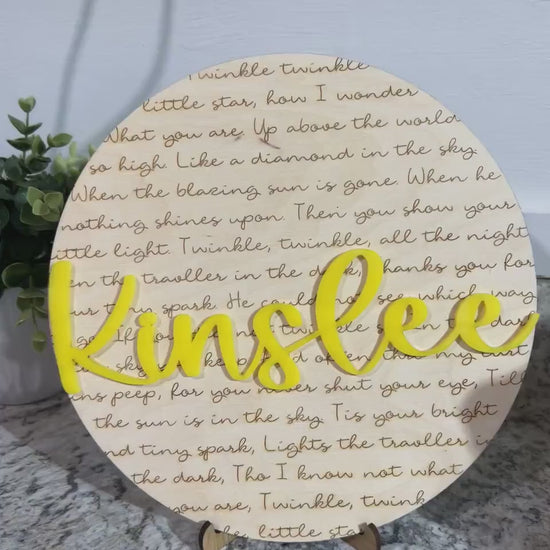 Twinkle twinkle
little star, how I wonder
What you are. Up above the world
so high. Like a diamond in the sky.
When the blazing sun is gone. When he
nothing shines upon. Then you show your
little light. Twinkle, twinkle, all the night
en the travller in the dark, thanks you for
your tiny spark. He could not see which way
go. If you twinkle
Kinslee
dark
sky keep and often
ins peep, for you never shut your eye, Till
the sun is in the sky. Tis your bright
nd tiny spark, Lights the travller in
the dark, Tho I know not what
you are, Twinkle, twink
little sta